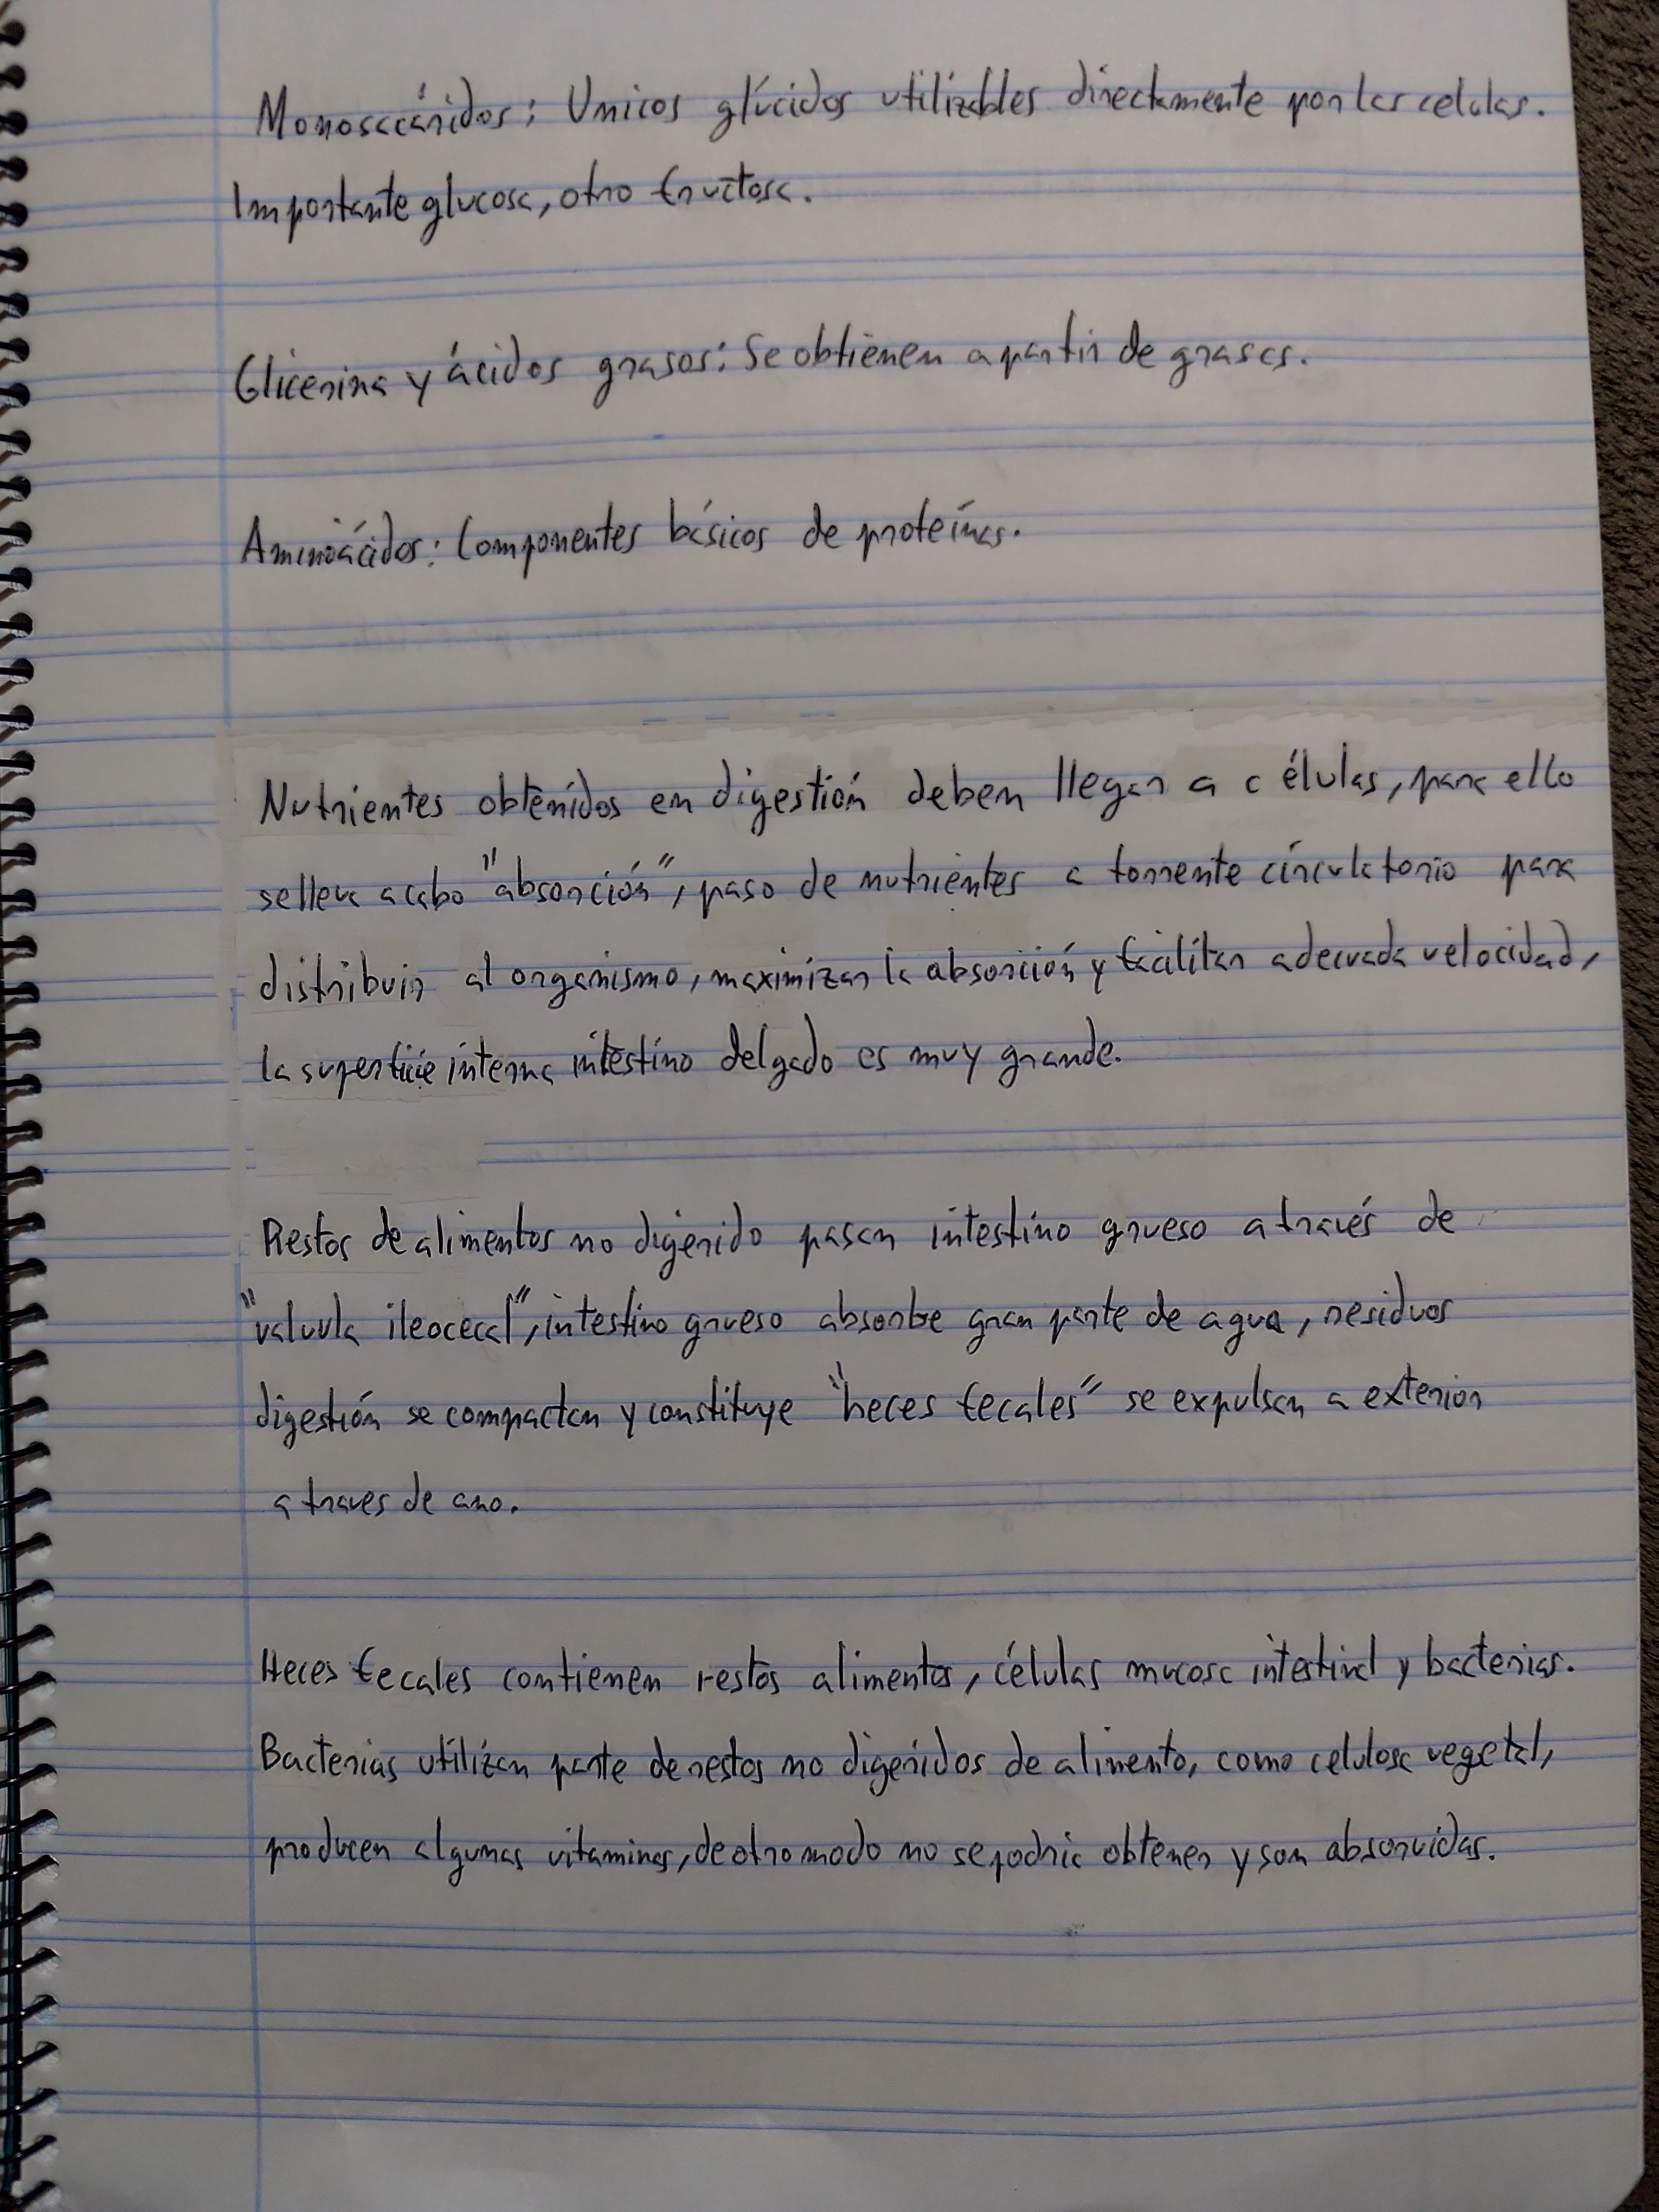 Monosacáridos: Unicos glúcidos utilizables directamente por las celulas.
Importante glucosa, otro fructosa.
Glicerina y ácidos grasos: Se obtienen a partir de grasas.
Aminoácidos: Componentes básicos de proteínas.
Nutrientes obtenidos en digestión deben llegar a células, para ello
se lleva a cabo "absorción", paso de nutrientes a torrente circulatorio para
distribuir al organismo, maximizar la absorción y facilitar adecuada velocidad,
la superficie interna intestino delgado es muy grande.
Restos de alimentos no digerido pasan intestino grueso a través de
"valvula ileocecal", intestino grueso absorbe gran parte de agua, residuos
digestión se compactan y constituye "heces fecales" se expulsan a exterior
a traves de ano.
Heces fecales contienen restos alimentos, células mucosa intestinal y bacterias.
Bacterias utilizan parte de restos no digeridos de alimento, como celulosa vegetal,
producen algunas vitaminas, de otro modo no se podria obtener y son absorvidas.